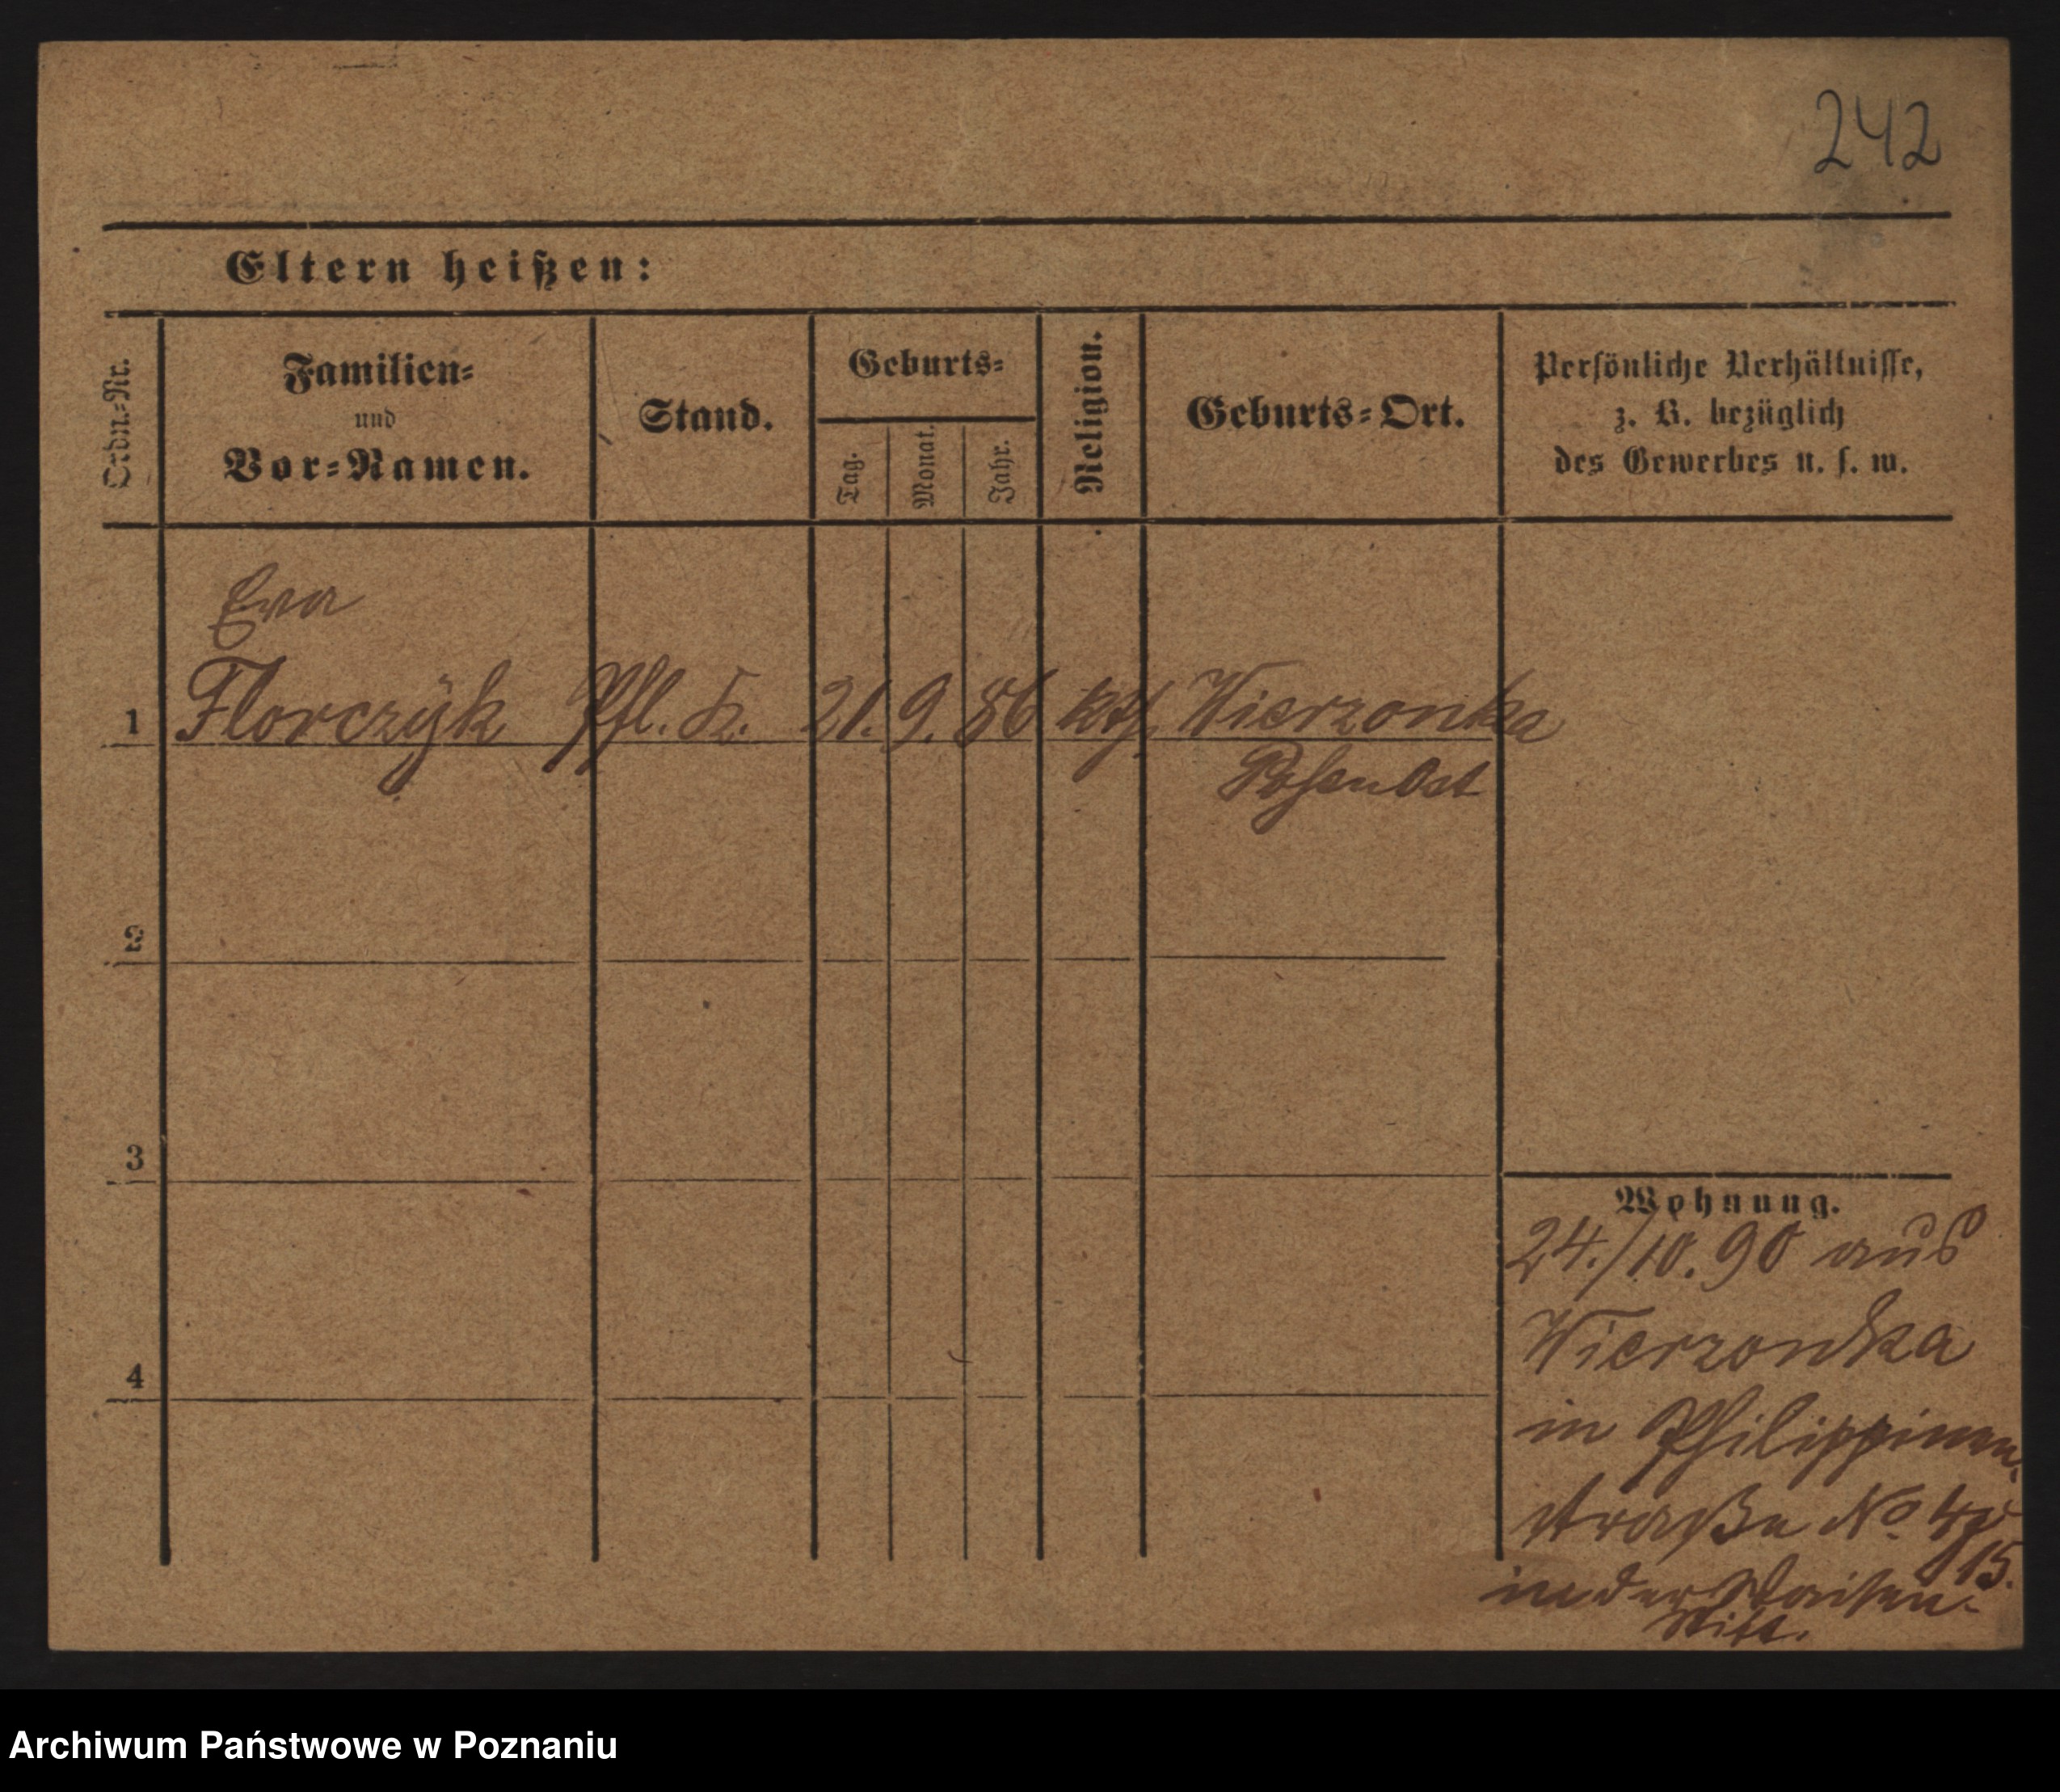 242
Eltern heißen:
Ordn.-Nr.
Familien-
und
Vor-Namen.
Stand.
Geburts-
Tag.
Monat.
Jahr.
Religion.
Geburts-Ort.
Persönliche Verhältnisse,
z. B. bezüglich
des Gewerbes u. s. w.
Eva
1 Florczÿk Pfl. K. 21. 9. 86 kth. Wierzonka
Posen Ost
2
3
4
Wohnung.
24./10. 90 aus
Wierzonka
in Philippinen-
straße No
15.
in der Waisen-
Stift.
Archiwum Państwowe w Poznaniu